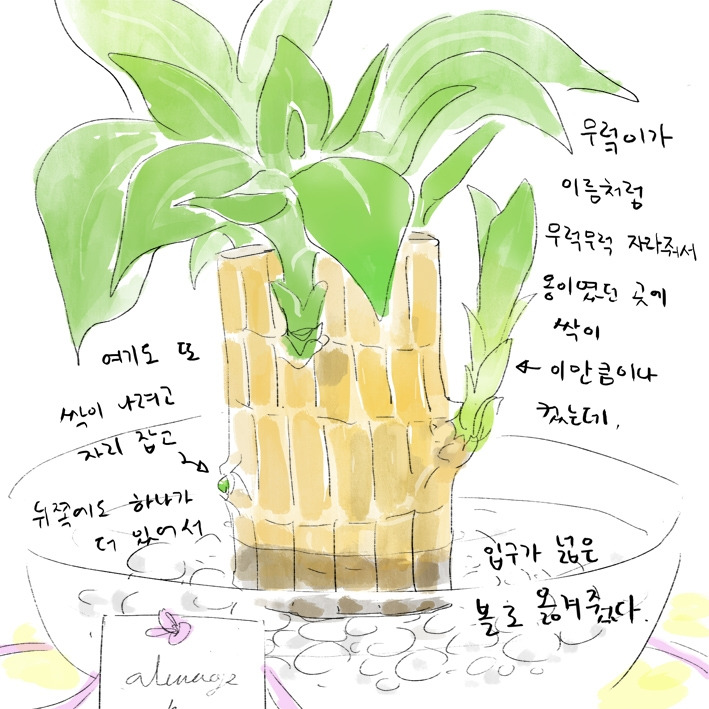 무럭이가
이름처럼
무럭무럭 자라줘서
옹이였던 곳에
싹이
← 이만큼이나
컸는데,
여기도 또
싹이 나려고
자리 잡고
뒤쪽에도 하나가
더 있어서
입구가 넓은
볼로 옮겨줬다.